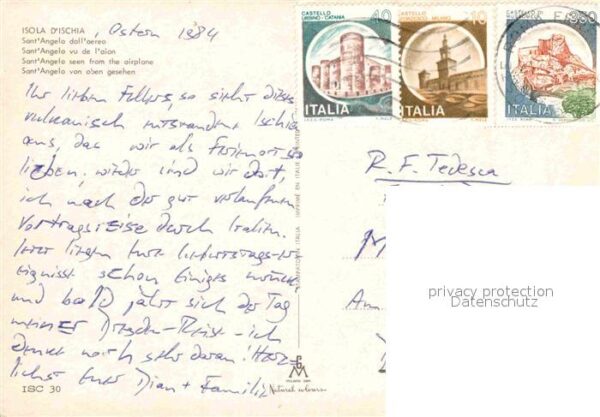 ISOLA D'ISCHIA , Ostern 1984
Sant'Angelo dall'aereo
Sant'Angelo vu de l'aion
Sant'Angelo seen from the airplane
Sant'Angelo von oben gesehen
Ihr lieben Fellers, so sieht dieses
vulkanisch entstandene Ischia
aus, das wir als Ferienort so
lieben. wieder sind wir dort,
ich nach der gut verlaufenen
Vortragsreise durch Italien.
liegen Eure
schon einiges zurück
und bald jährt sich der Tag
meiner Dresden-Reise - ich
denke noch sehr daran! Herz-
lichst Eure Dian + Familie
ISC 30
CASTELLO
URSINO - CATANIA
40
ITALIA
CASTELLO
SFORZESCO - MILANO
10
ITALIA
350
ITALIA
R. F. Tedesca
M
An
privacy protection
Datenschutz
MILANO
Natural colours